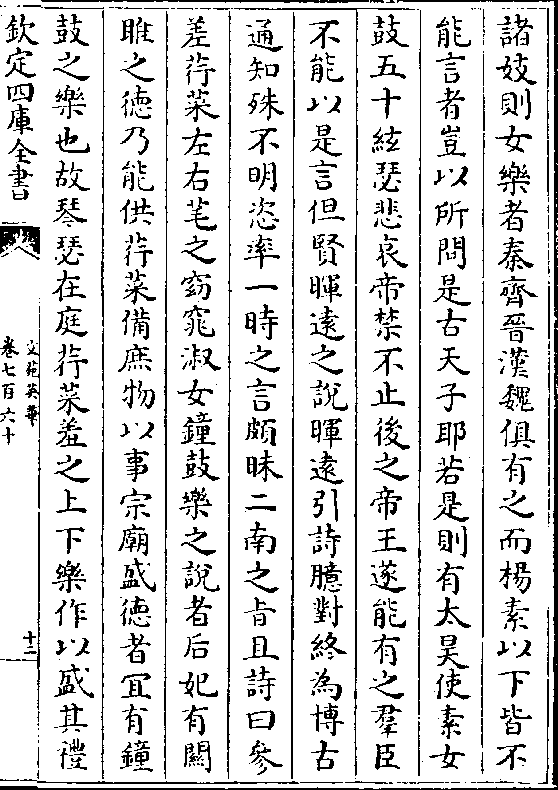 諸妓則女樂者秦齊晉漢魏俱有之而楊素以下皆不
能言者豈以所問是古天子耶若是則有太昊使素女
鼓五十絃瑟悲哀帝禁不止後之帝王遂能有之羣臣
不能以是言但賢暉遠之說暉遠引詩臆對終為博古
通知殊不明恣率一時之言頗昧二南之㫖且詩曰參
差荇菜左右芼之窈窕淑女鐘鼓樂之說者后妃有關
雎之徳乃能供荇菜備庶物以事宗廟盛德者宜有鐘
鼓之樂也故琴瑟在庭荇菜羞之上下樂作以盛其禮
欽定四庫全書
文苑英華
卷七百六十
十二